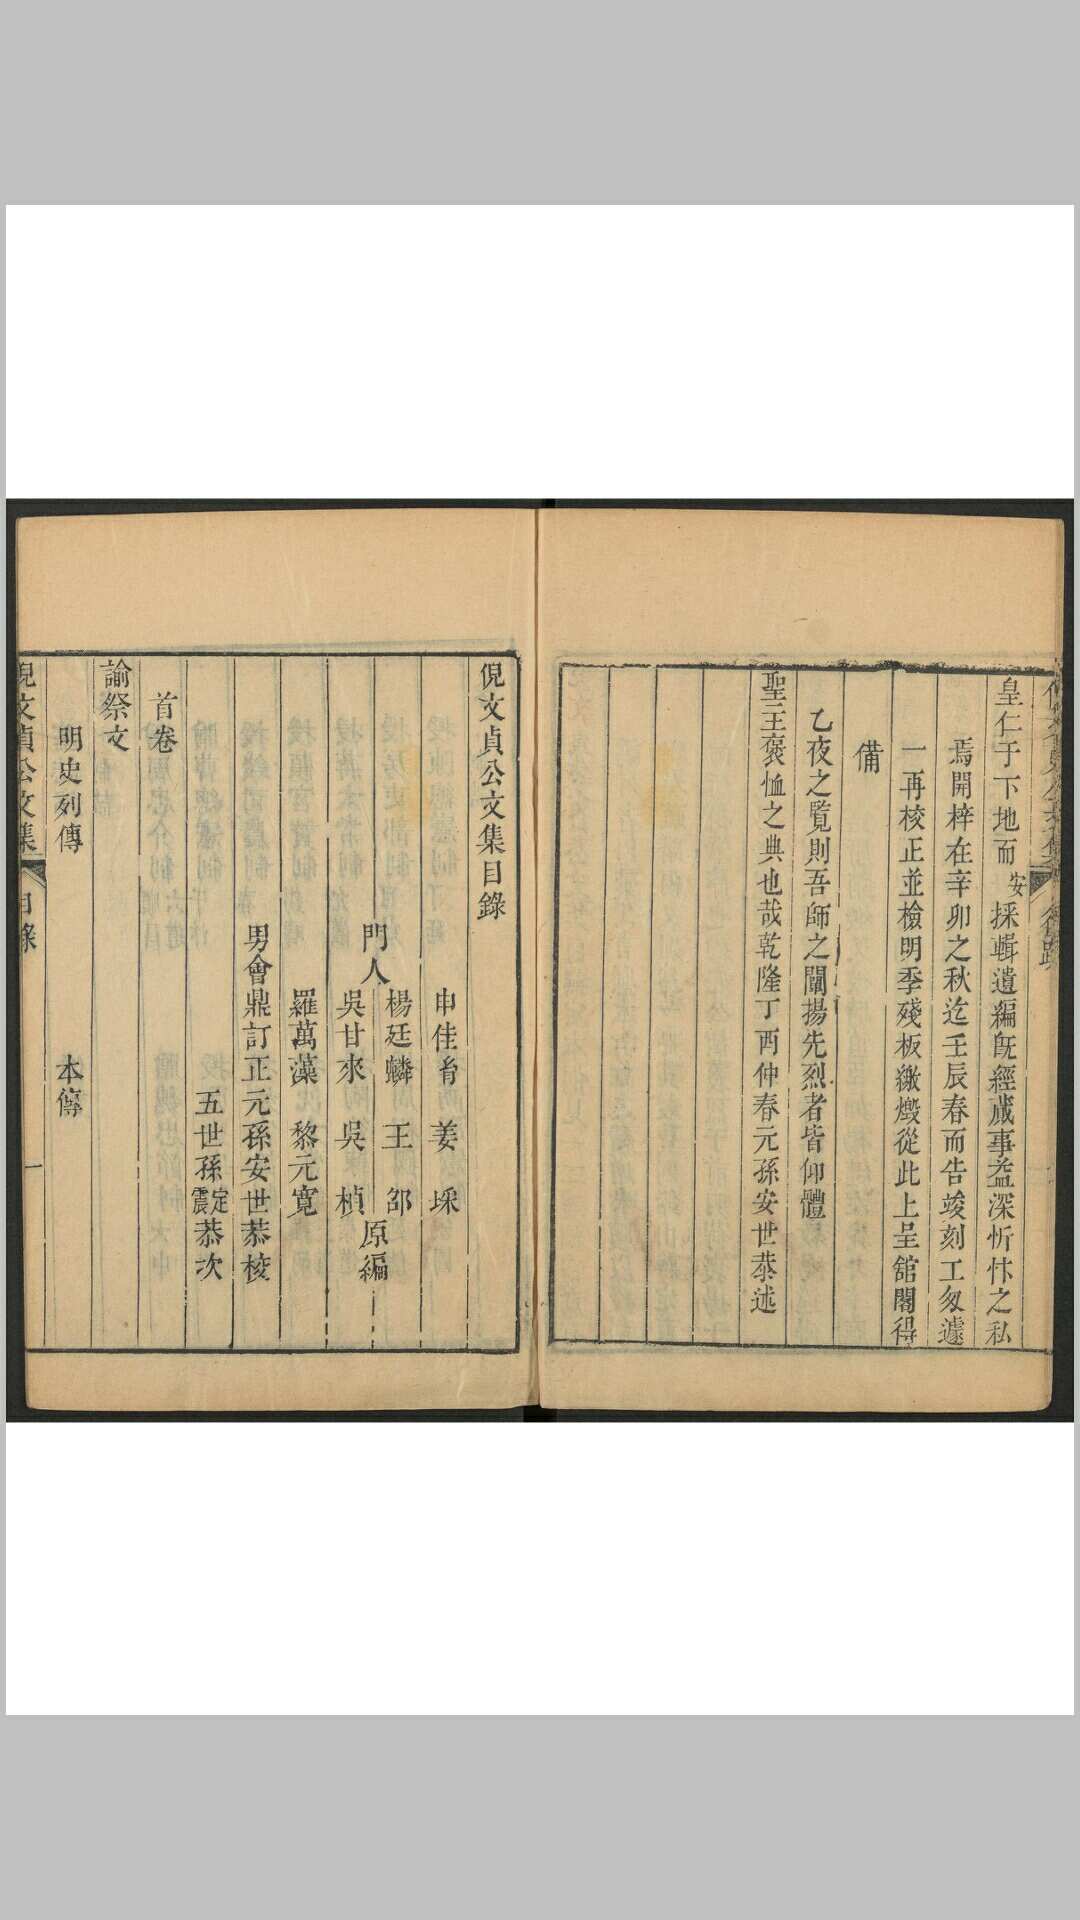 皇仁于下地而安採輯遺編旣經蕆事益深忻忭之私
焉開梓在辛卯之秋迄壬辰春而告竣刻工匆遽
一再校正並檢明季殘板繳燬從此上呈舘閣得
備
乙夜之覧則吾師之闡揚先烈者皆仰體
聖王褒恤之典也哉乾隆丁酉仲春元孫安世恭述
倪文貞公文集目錄
申佳胄 姜埰
門人 楊廷麟 王邵 原編
吳甘來 吳楨
羅萬藻 黎元寬
男會鼎訂正元孫安世恭校
五世孫震定恭次
首卷
諭祭文
明史列傳 本傳
倪文貞公文集 目錄 一